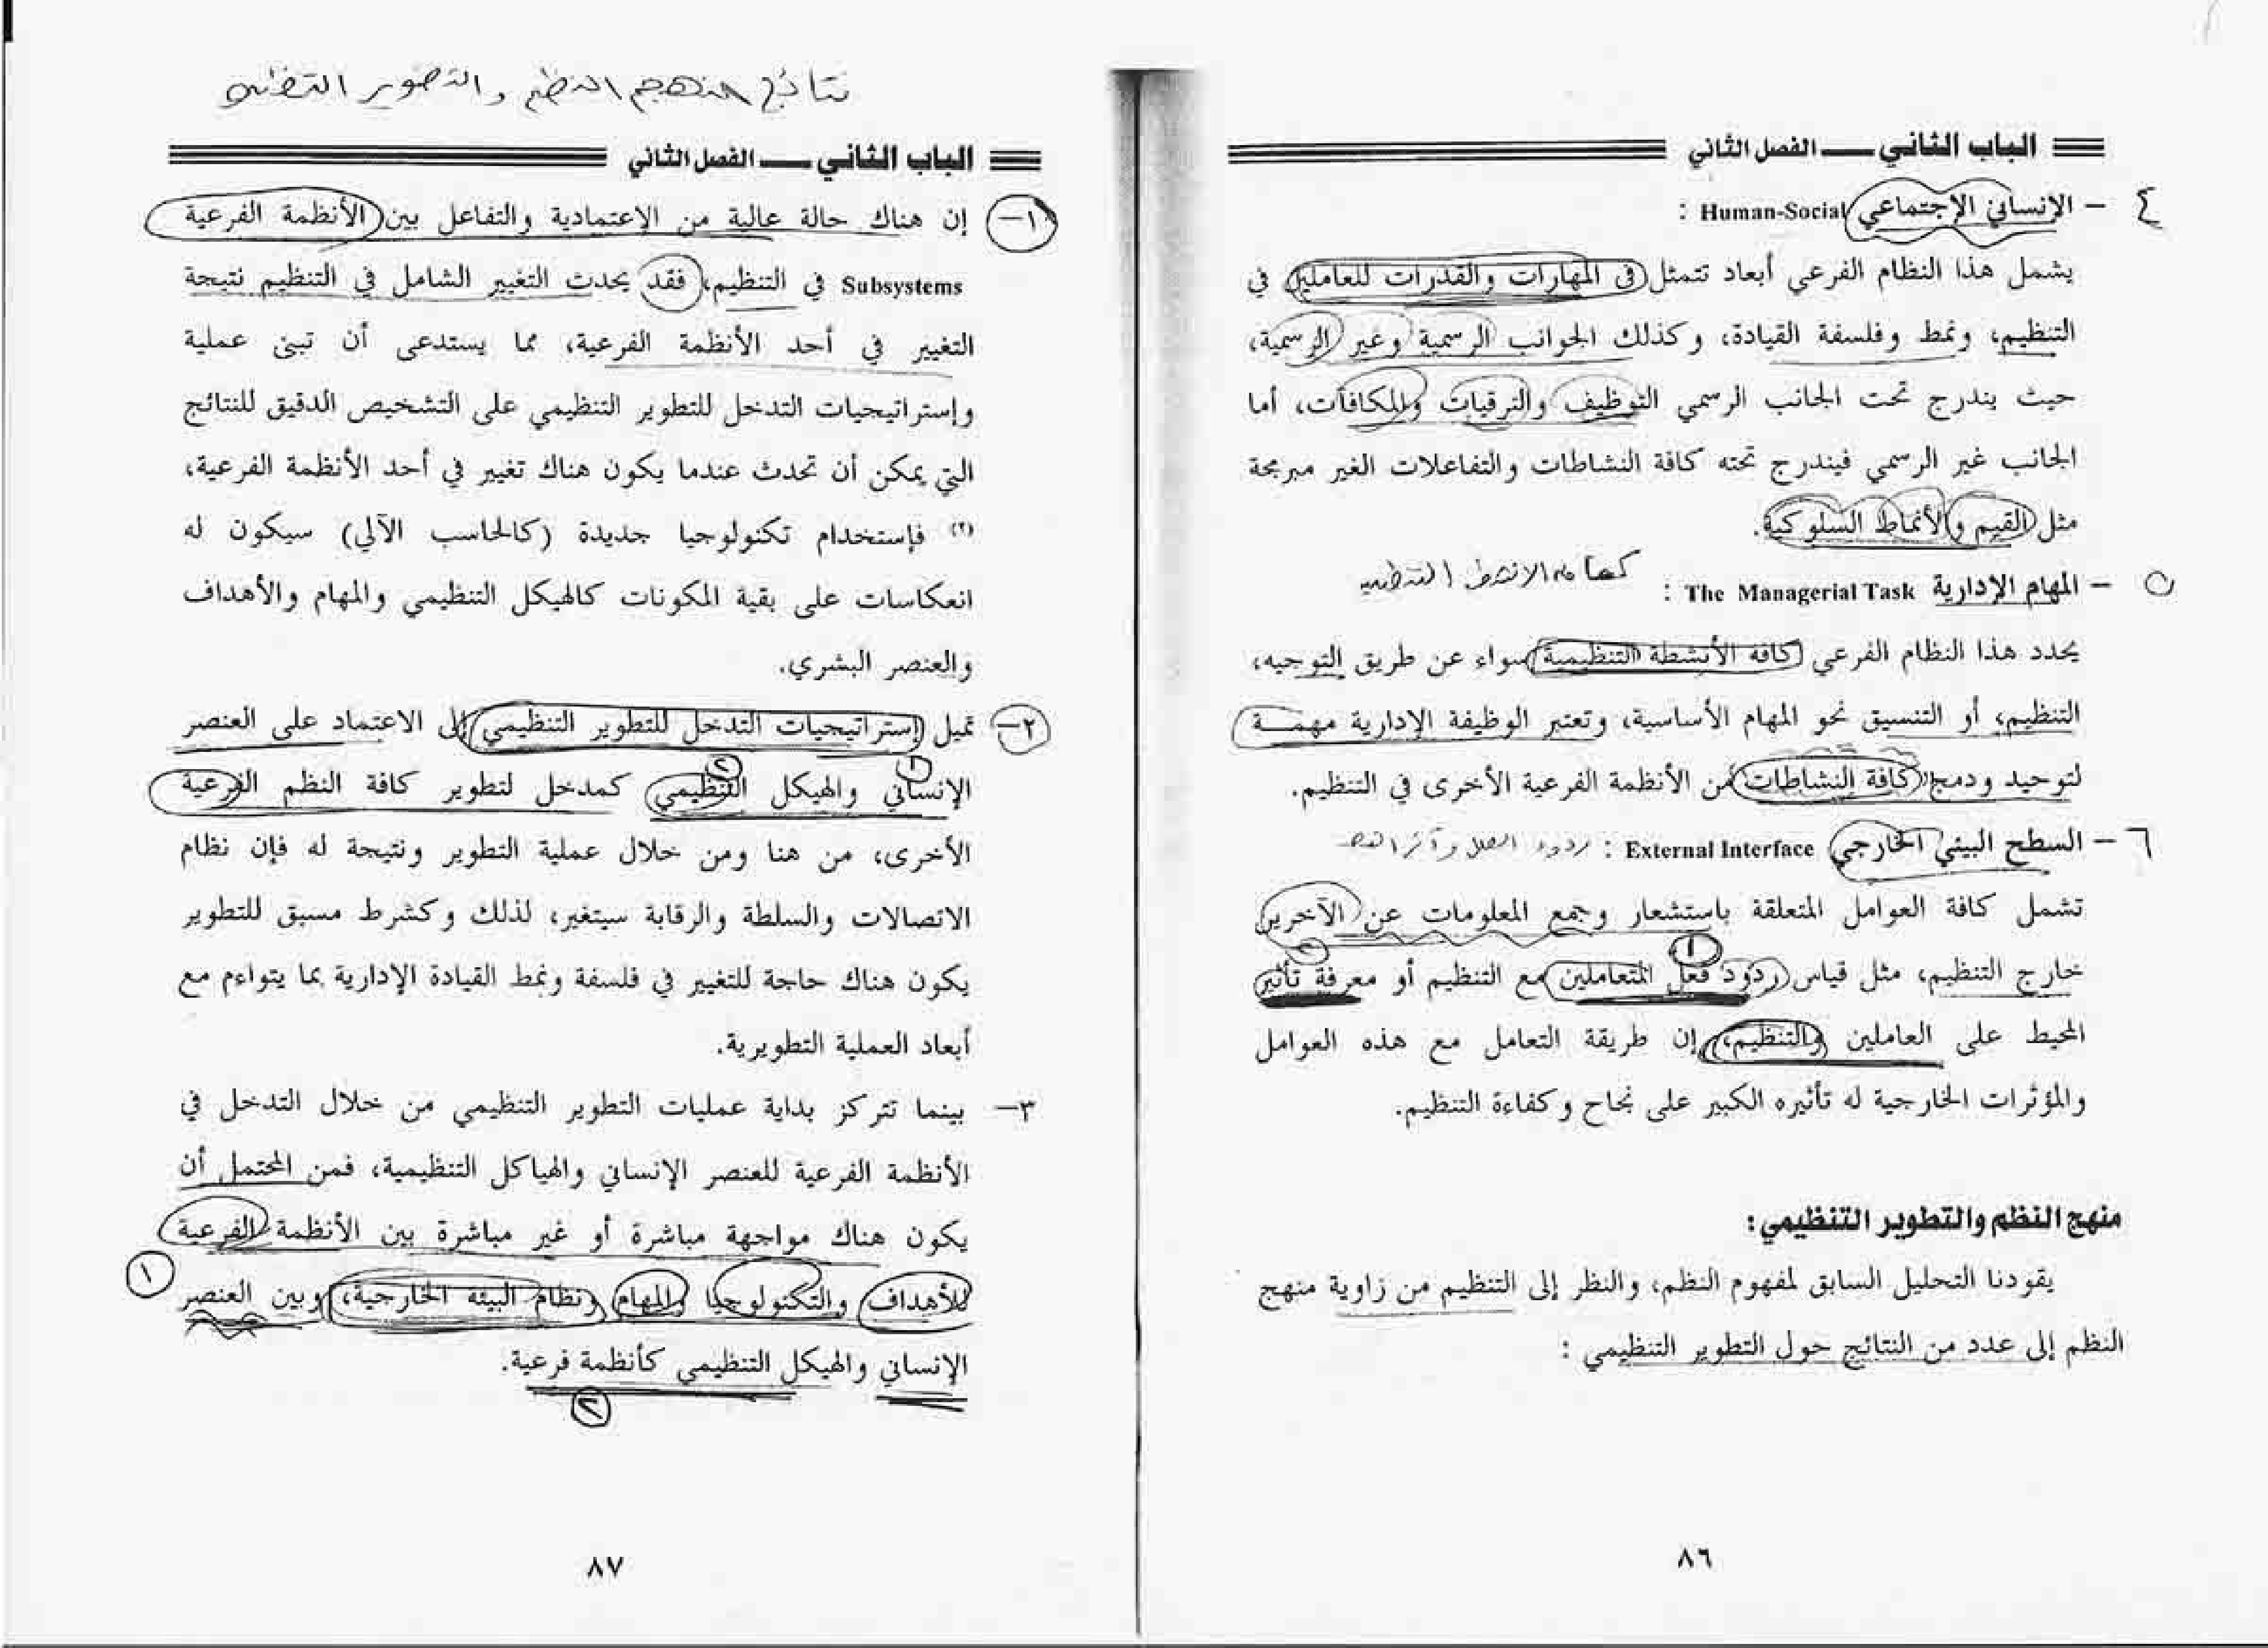 الباب الثاني — الفصل الثاني
٤ – الإنساني الإجتماعي Human-Social :
يشمل هذا النظام الفرعي أبعاد تتمثل في المهارات والقدرات للعاملين في
التنظيم، ونمط وفلسفة القيادة، وكذلك الجوانب الرسمية وغير الرسمية،
حيث يندرج تحت الجانب الرسمي التوظيف والترقيات والمكافآت، أما
الجانب غير الرسمي فيندرج تحته كافة النشاطات والتفاعلات الغير مبرمجة
مثل القيم والأنماط السلوكية.
٥ – المهام الإدارية The Managerial Task :
يحدد هذا النظام الفرعي كافة الأنشطة التنظيمية سواء عن طريق التوجيه،
التنظيم، أو التنسيق نحو المهام الأساسية، وتعتبر الوظيفة الإدارية مهمة
لتوحيد ودمج كافة النشاطات من الأنظمة الفرعية الأخرى في التنظيم.
٦ – السطح البيئي الخارجي External Interface :
تشمل كافة العوامل المتعلقة باستشعار وجمع المعلومات عن الآخرين
خارج التنظيم، مثل قياس ردود فعل المتعاملين مع التنظيم أو معرفة تأثير
المحيط على العاملين والتنظيم، إن طريقة التعامل مع هذه العوامل
والمؤثرات الخارجية له تأثيره الكبير على نجاح وكفاءة التنظيم.
منهج النظم والتطوير التنظيمي:
يقودنا التحليل السابق لمفهوم النظم، والنظر إلى التنظيم من زاوية منهج
النظم إلى عدد من النتائج حول التطوير التنظيمي :
٨٦
نتائج منهج النظم والتطوير التنظيمي
الباب الثاني — الفصل الثاني
١– إن هناك حالة عالية من الإعتمادية والتفاعل بين الأنظمة الفرعية
Subsystems في التنظيم، فقد يحدث التغيير الشامل في التنظيم نتيجة
التغيير في أحد الأنظمة الفرعية، مما يستدعى أن تبنى عملية
وإستراتيجيات التدخل للتطوير التنظيمي على التشخيص الدقيق للنتائج
التي يمكن أن تحدث عندما يكون هناك تغيير في أحد الأنظمة الفرعية،
(٢) فإستخدام تكنولوجيا جديدة (كالحاسب الآلي) سيكون له
انعكاسات على بقية المكونات كالهيكل التنظيمي والمهام والأهداف
والعنصر البشري.
٢– تميل إستراتيجيات التدخل للتطوير التنظيمي إلى الاعتماد على العنصر
١ ٢
الإنساني والهيكل التنظيمي كمدخل لتطوير كافة النظم الفرعية
الأخرى، من هنا ومن خلال عملية التطوير ونتيجة له فإن نظام
الاتصالات والسلطة والرقابة سيتغير، لذلك وكشرط مسبق للتطوير
يكون هناك حاجة للتغيير في فلسفة ونمط القيادة الإدارية بما يتواءم مع
أبعاد العملية التطويرية.
٣– بينما تتركز بداية عمليات التطوير التنظيمي من خلال التدخل في
الأنظمة الفرعية للعنصر الإنساني والهياكل التنظيمية، فمن المحتمل أن
يكون هناك مواجهة مباشرة أو غير مباشرة بين الأنظمة الفرعية
للأهداف والتكنولوجيا والمهام ونظام البيئة الخارجية، وبين العنصر ١
الإنساني والهيكل التنظيمي كأنظمة فرعية.
٢
٨٧